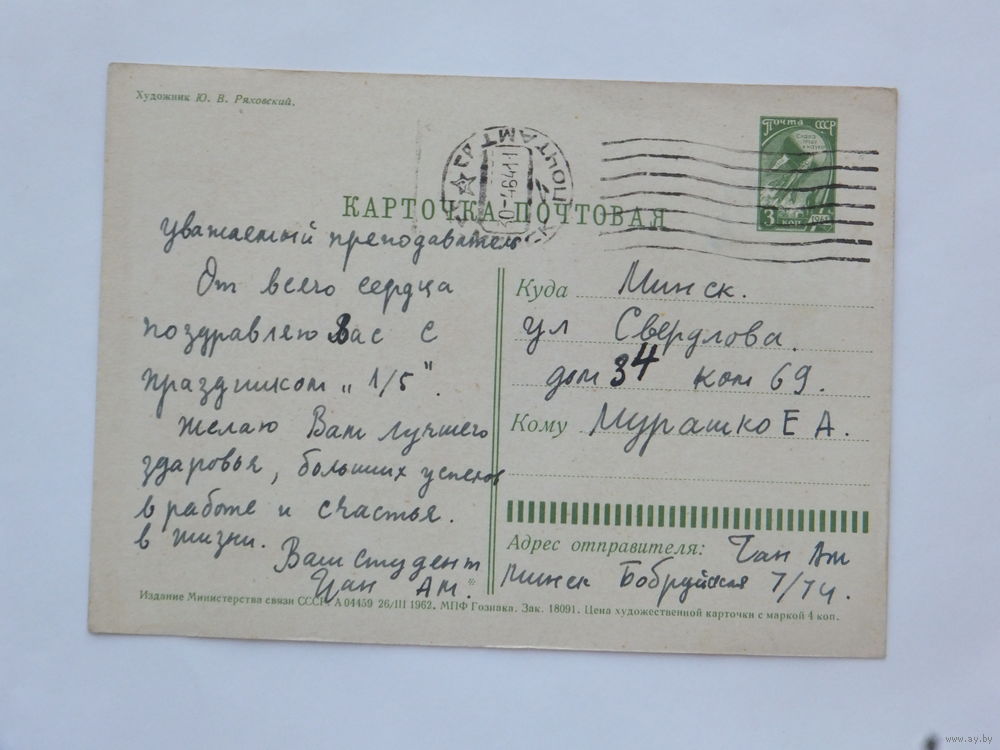 Художник Ю. В. Ряховский.
Почта СССР
3 коп
1961
ПОЧТАМТ
КАРТОЧКА ПОЧТОВАЯ
уважаемый преподаватель
От всего сердца
поздравляю Вас с
праздником „1/5".
Желаю Вам лучшего
здаровья, больших успехов
в работе и счастья.
в жизни.
Ваш студент
Ам.
Куда Минск.
ул Свердлова.
дом 34 ком 69.
Кому Мурашко Е А.
Адрес отправителя: Чан Ам
Минск Бобруйская 7/74.
Издание Министерства связи СССР. А 04459 26/III 1962. МПФ Гознака. Зак. 18091. Цена художественной карточки с маркой 4 коп.
www.ay.by